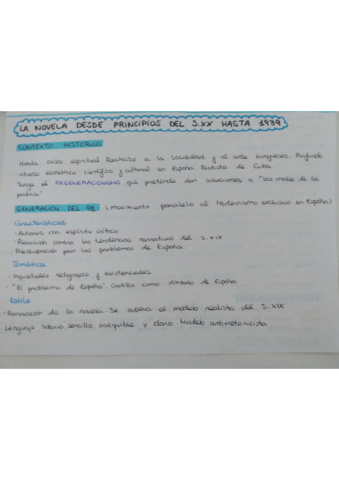 LA NOVELA DESDE PRINCIPIOS DEL S.XX HASTA 1939
CONTEXTO HISTÓRICO
Honda crisis espiritual. Rechazo a la sociedad y al arte burgueses. Profundo
atraso económico científico y cultural en España. Pérdida de Cuba.
Surge el REGENERACIONISMO que pretende dar soluciones a "los males de la
patria"
GENERACIÓN DEL 98 (movimiento paralelo al Modernismo exclusivo en España)
Características
- Autores con espíritu crítico
- Reacción contra las tendencias narrativas del S.XIX
- Preocupación por los problemas de España.
Temática
- Inquietudes religiosas y existenciales
- "El problema de España". Castilla como símbolo de España
Estilo
- Renovación de la novela. Se supera el modelo realista del S.XIX
Lenguaje sobrio, sencillo, asequible y claro. Modelo antirretoricista